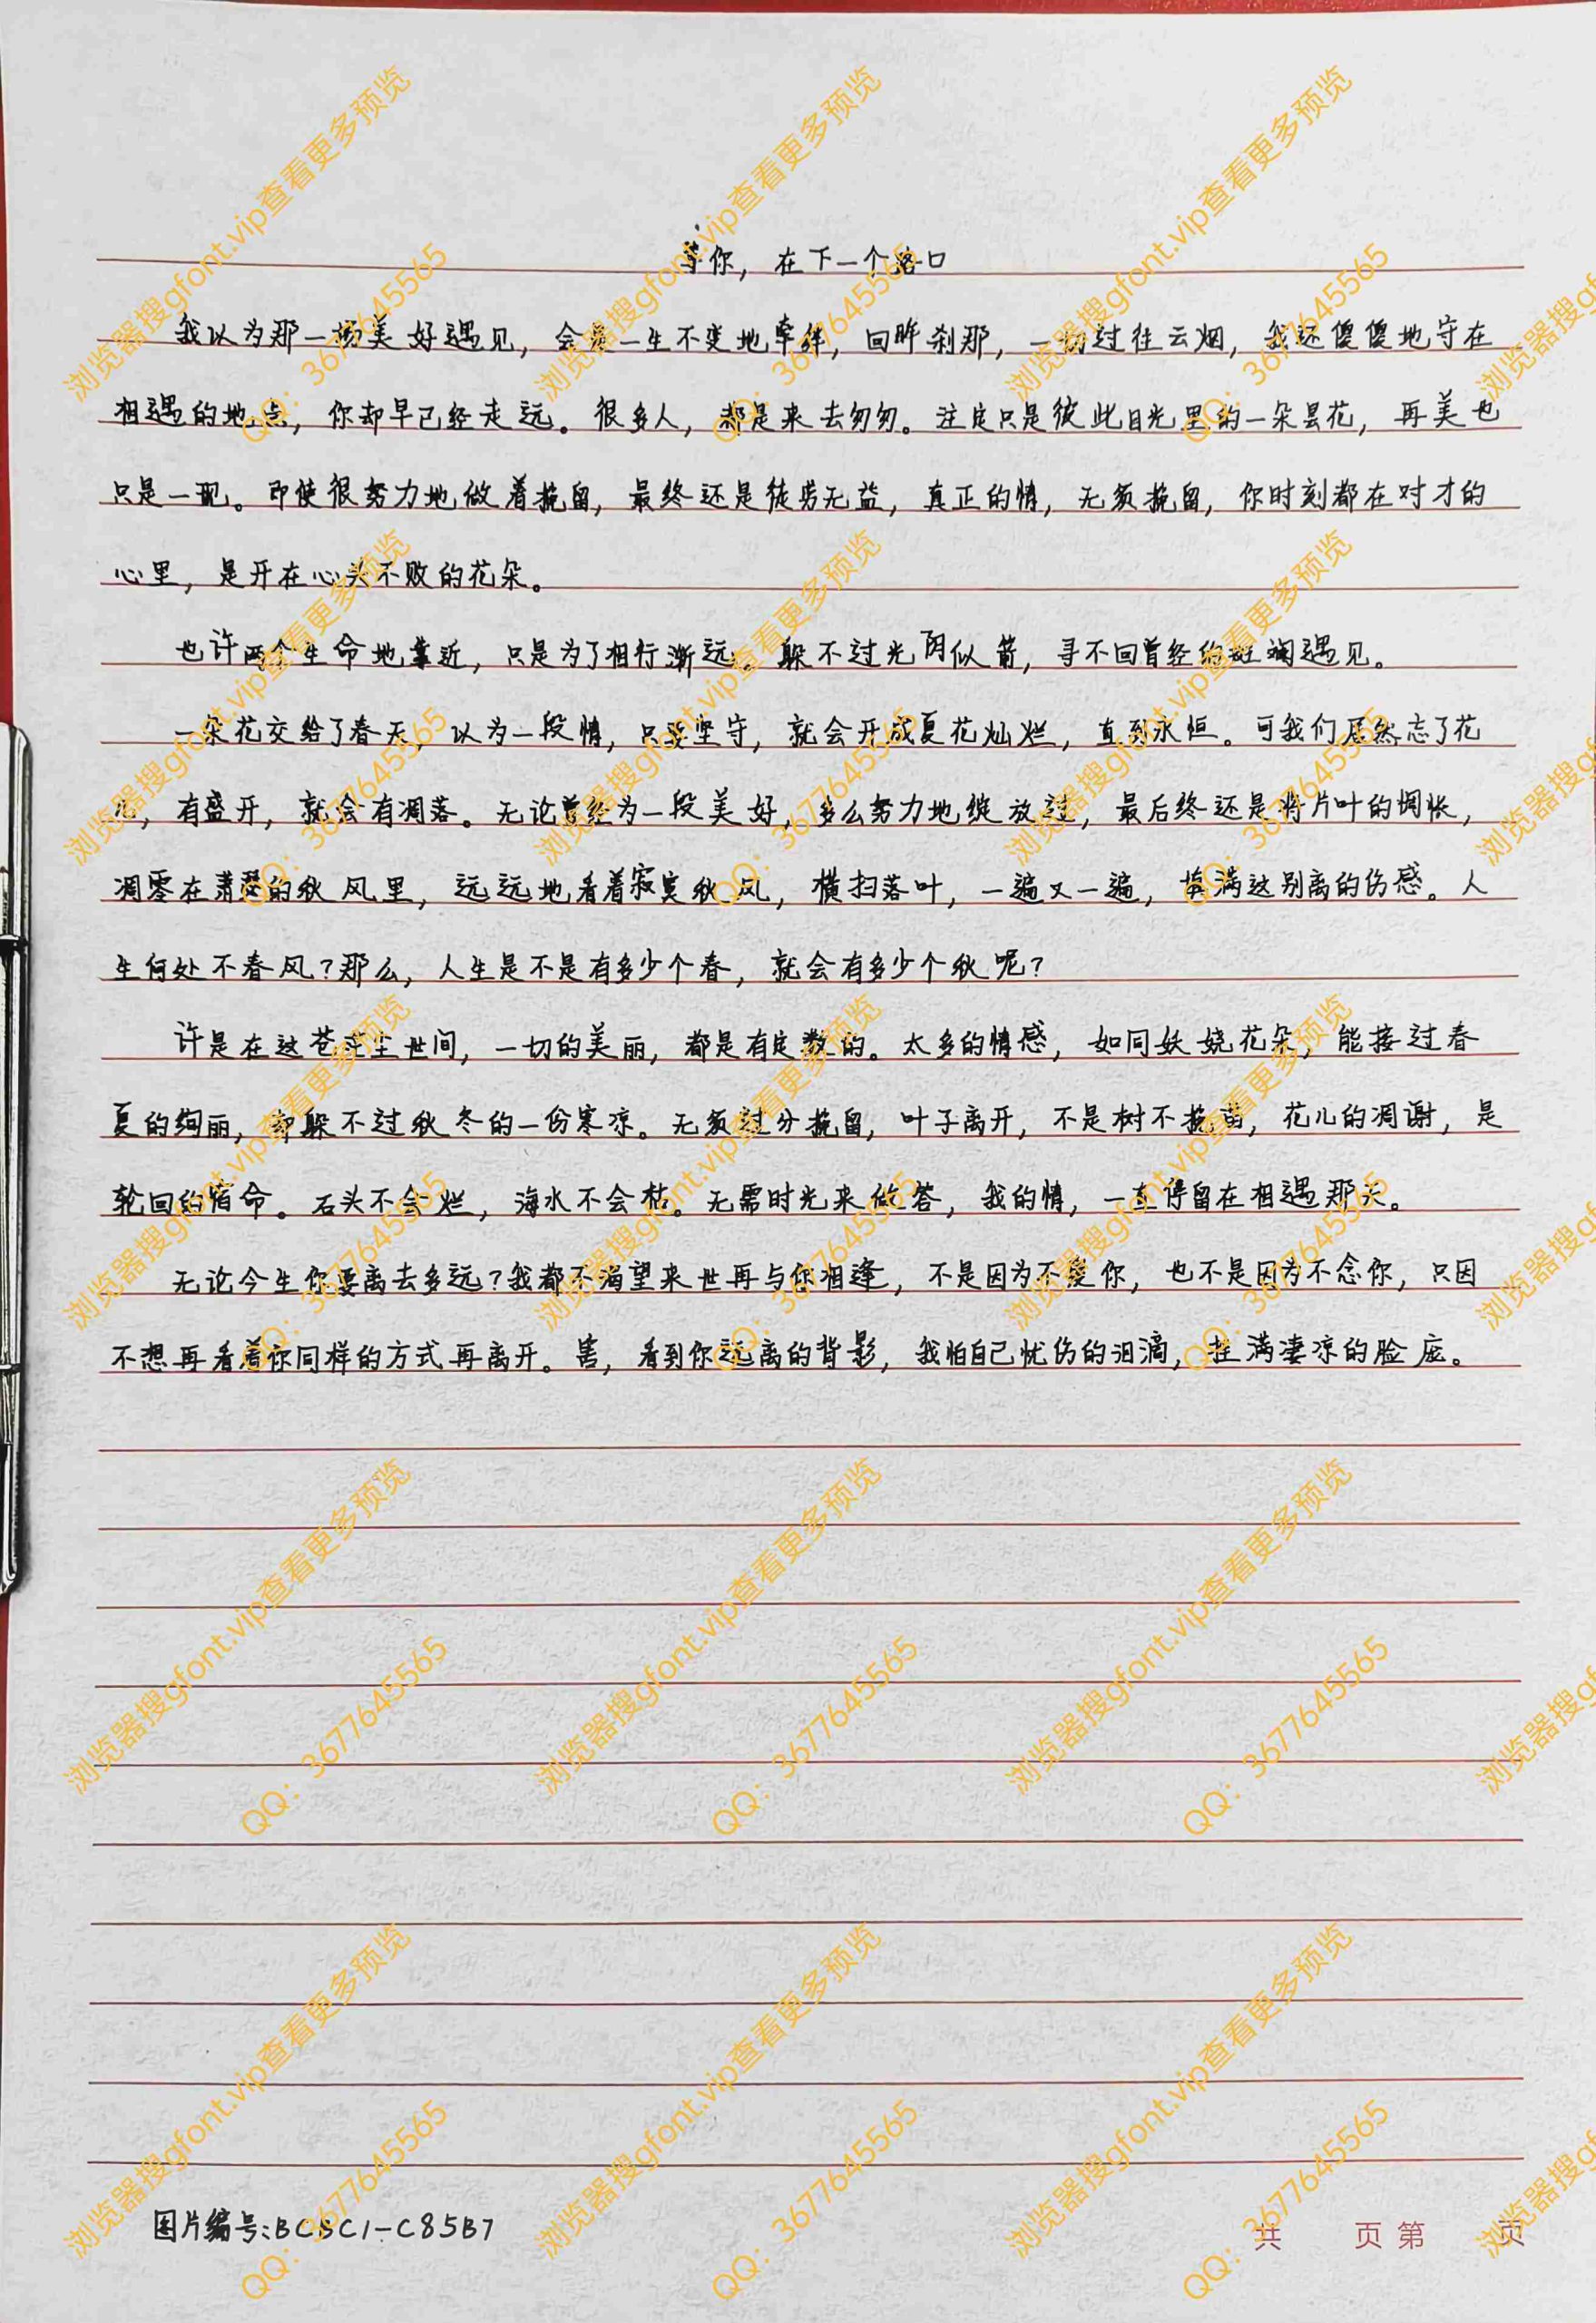 等你，在下一个路口
我以为那一场美好遇见，会是一生不变地牵绊，回眸刹那，一切过往云烟，我还傻傻地守在
相遇的地点，你却早已经走远。很多人，都是来去匆匆。注定只是彼此目光里的一朵昙花，再美也
只是一现。即使很努力地做着挽留，最终还是徒劳无益，真正的情，无须挽留，你时刻都在对才的
心里，是开在心头不败的花朵。
也许两个生命地靠近，只是为了相行渐远。躲不过光阴似箭，寻不回曾经的斑斓遇见。
一朵花交给了春天，以为一段情，只要坚守，就会开成夏花灿烂，直到永恒。可我们居然忘了花
，有盛开，就会有凋落。无论曾经为一段美好，多么努力地绽放过，最后终还是将片叶的惆怅，
凋零在萧瑟的秋风里，远远地看着寂寞秋风，横扫落叶，一遍又一遍，填满这别离的伤感。人
生何处不春风？那么，人生是不是有多少个春，就会有多少个秋呢？
许是在这苍茫尘世间，一切的美丽，都是有定数的。太多的情感，如同妖娆花朵，能接过春
夏的绚丽，却躲不过秋冬的一份寒凉。无须过分挽留，叶子离开，不是树不挽留，花儿的凋谢，是
轮回的宿命。石头不会烂，海水不会枯。无需时光来做答，我的情，一直停留在相遇那天。
无论今生你要离去多远？我都不渴望来世再与你相逢，不是因为不爱你，也不是因为不念你，只因
不想再看着你同样的方式再离开。害，看到你远离的背影，我怕自己忧伤的泪滴，挂满凄凉的脸庞。
图片编号：BCBC1-C85B7
共 页 第 页
浏览器搜gfont.vip查看更多预览
QQ：3677645565